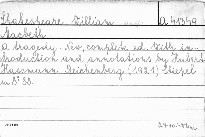 Shakespeare William
a 41349
Macbeth
a tragedy. New, complete ed. With in-
troduction and annotations by Hubert
Hausmann. Reichenberg (1921) Stiepel
m 8° 88.